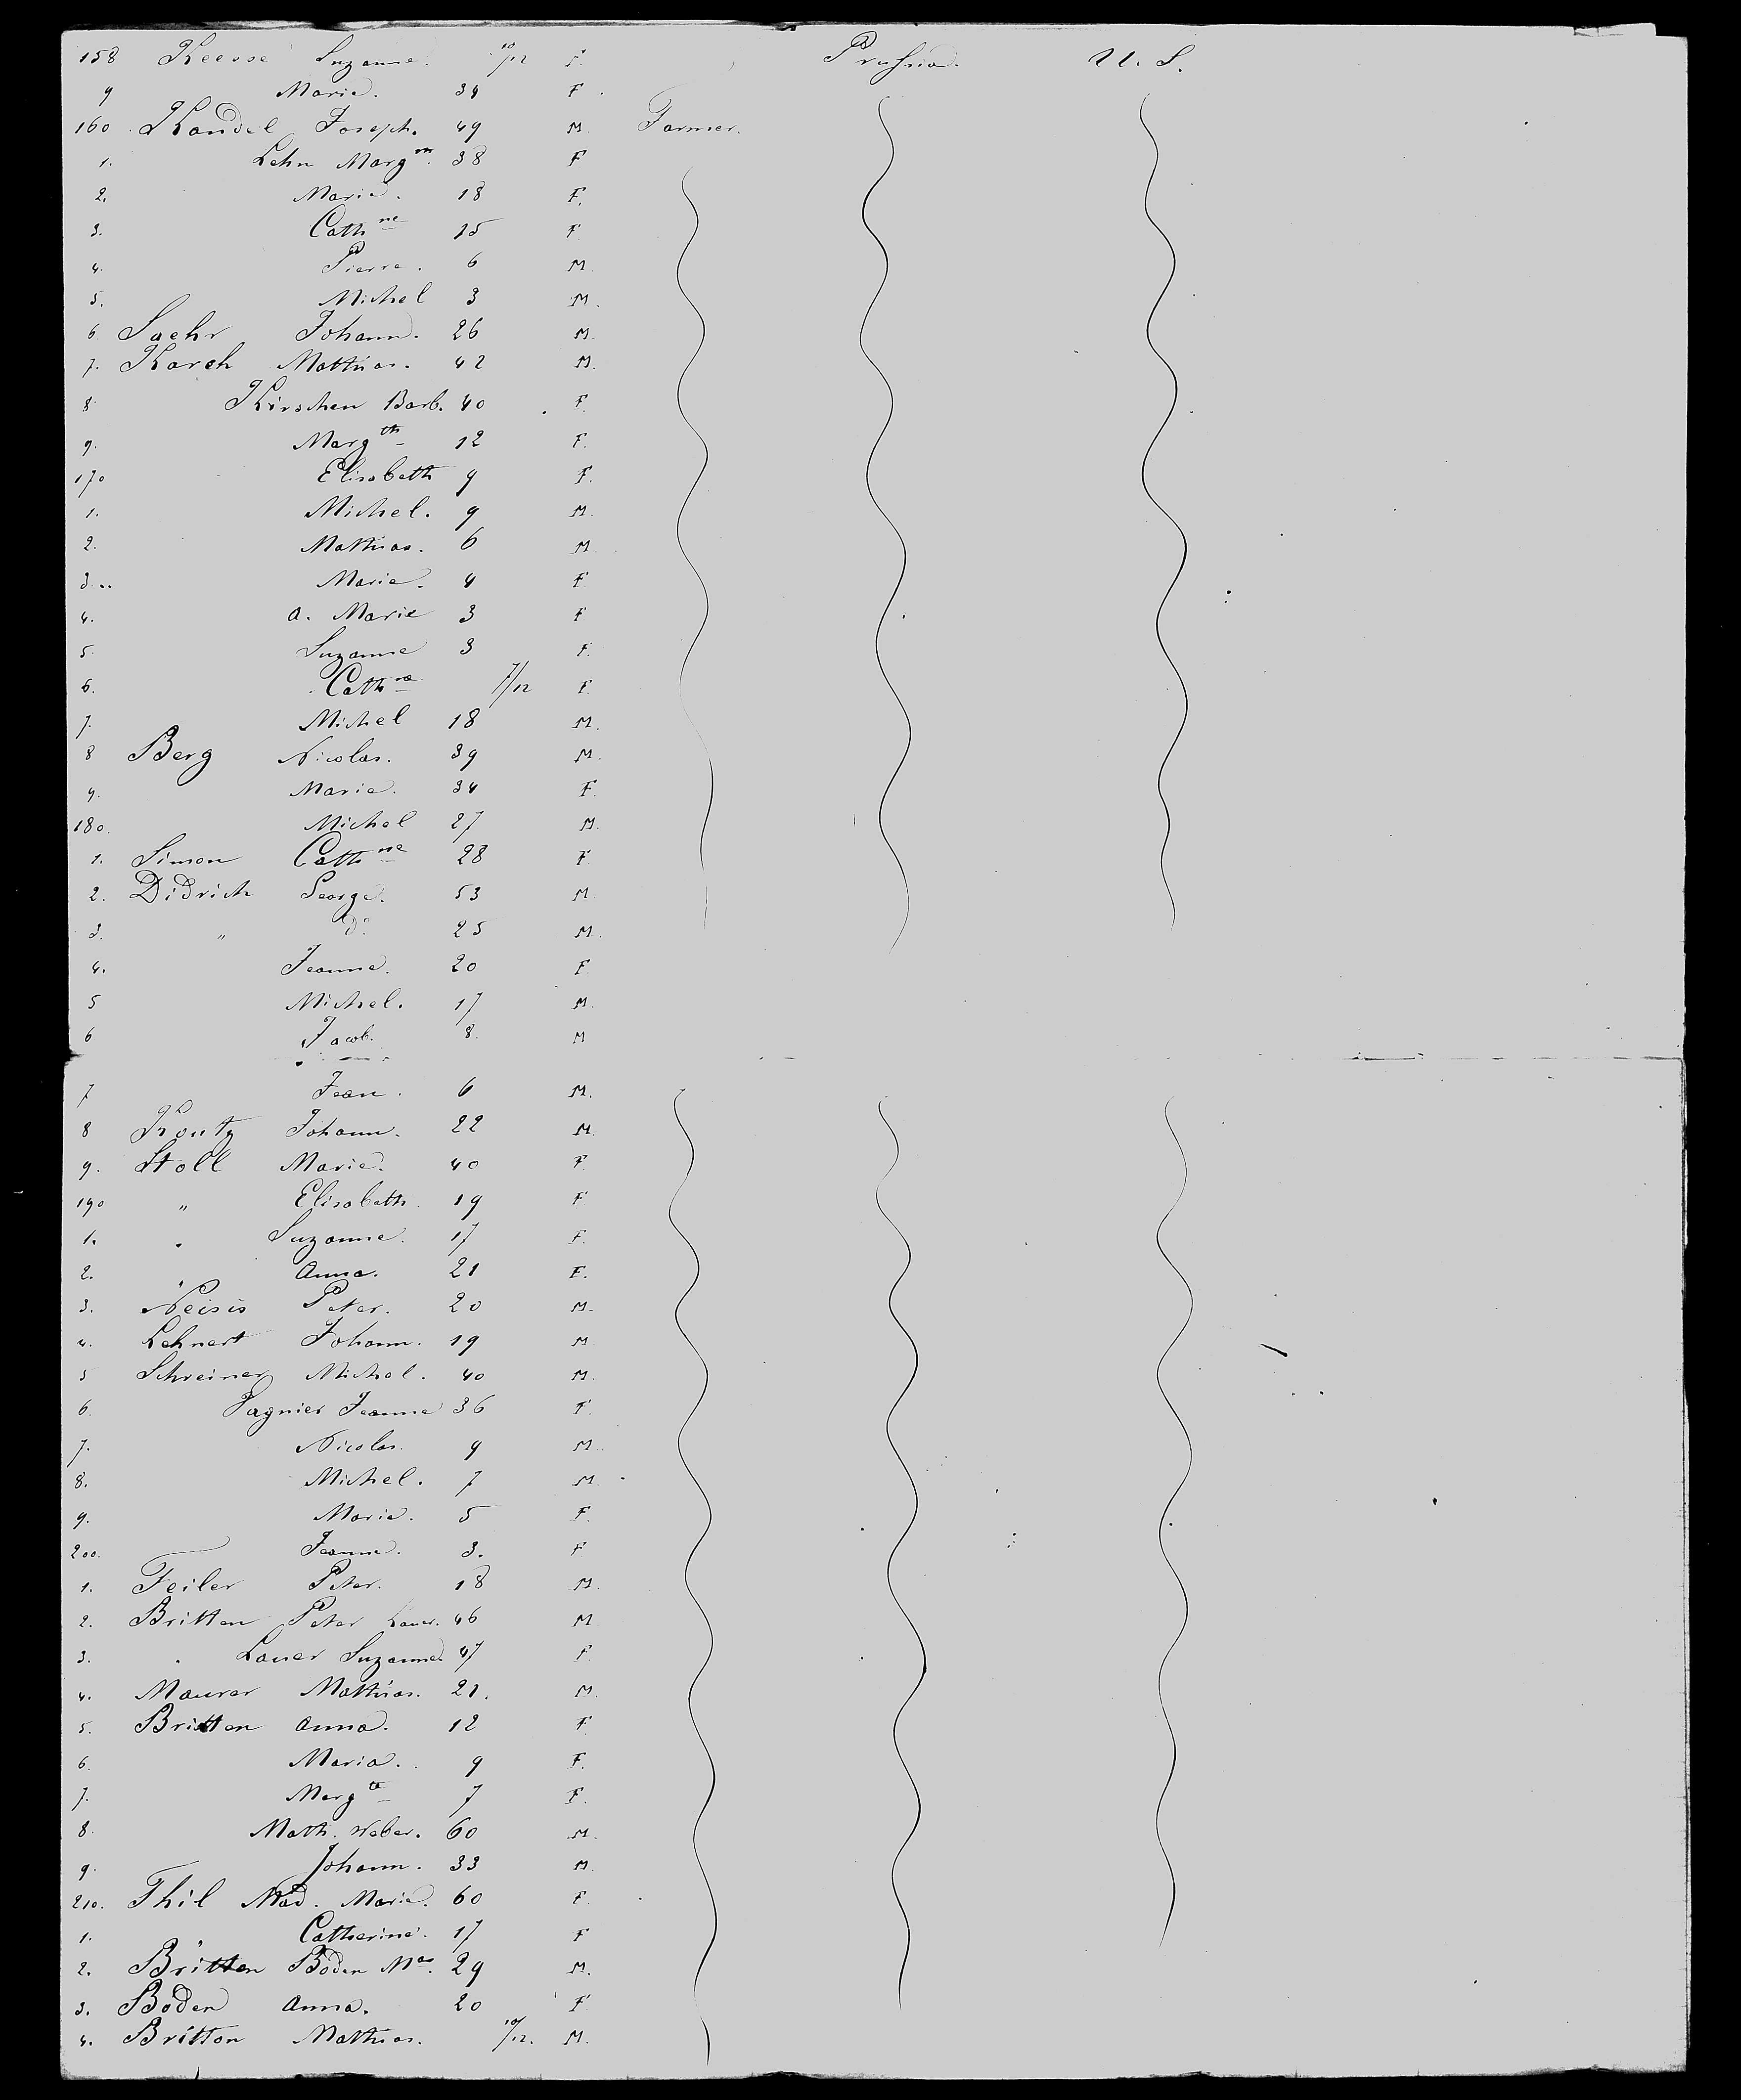 158 Keesse Suzanne. 10/12 F. Prussia. U. S.
9 Marie. 34 F.
160 Kandel Joseph. 49 M. Farmer.
1. Lehn Marg th. 38 F
2. Marie. 18 F.
3. Cath ne 15 F.
4. Pierre. 6 M.
5. Michel 3 M.
6. Saehr Johann. 26 M.
7. Karch Mathias. 42 M.
8 Kirschen Barb. 40 F.
9. Marg th 12 F.
170 Elisabeth 9 F.
1. Michel. 9 M.
2. Mathias. 6 M.
3. Marie. 4 F
4. A. Marie 3 F
5. Suzanne 3 F.
6. Cath ne 7/12 F.
7. Michel 18 M.
8 Berg Nicolas. 39 M.
9. Marie. 34 F.
180. Michel 27 M.
1. Simon Cath ne 28 F.
2. Didrich George. 53 M.
3. " do. 25 M.
4. Jeanne. 20 F.
5 Michel. 17 M.
6 Jacob. 8. M
7 Jean. 6 M.
8 Koutz Johann. 22 M.
9. Stoll Marie. 40 F.
190 " Elisabeth 19 F.
1. " Suzanne. 17 F.
2. " Anna. 21 F.
3. Neisis Peter. 20 M.
4. Lehnert Johann. 19 M
5 Schreiner Michel. 40 M.
6. Pagnier Jeanne 36 F.
7. Nicolas. 9 M.
8. Michel. 7 M.
9. Marie. 5 F.
200. Jeanne. 3. F
1. Feiler Peter. 18 M.
2. Britten Peter Lauer. 46 M
3. " Lauer Suzanne. 47 F.
4. Maurer Mathias. 21. M.
5. Britten Anna. 12 F.
6. Maria. 9 F.
7. Marg te 7 F.
8. Math. Weber. 60 M.
9. Johann. 33 M.
210. Thil Mad. Marie. 60 F.
1. " Catherine. 17 F
2. Britten Boden Mas. 29 M.
3. Boden Anna. 20 F
4. Britton Mathias. 10/12. M.